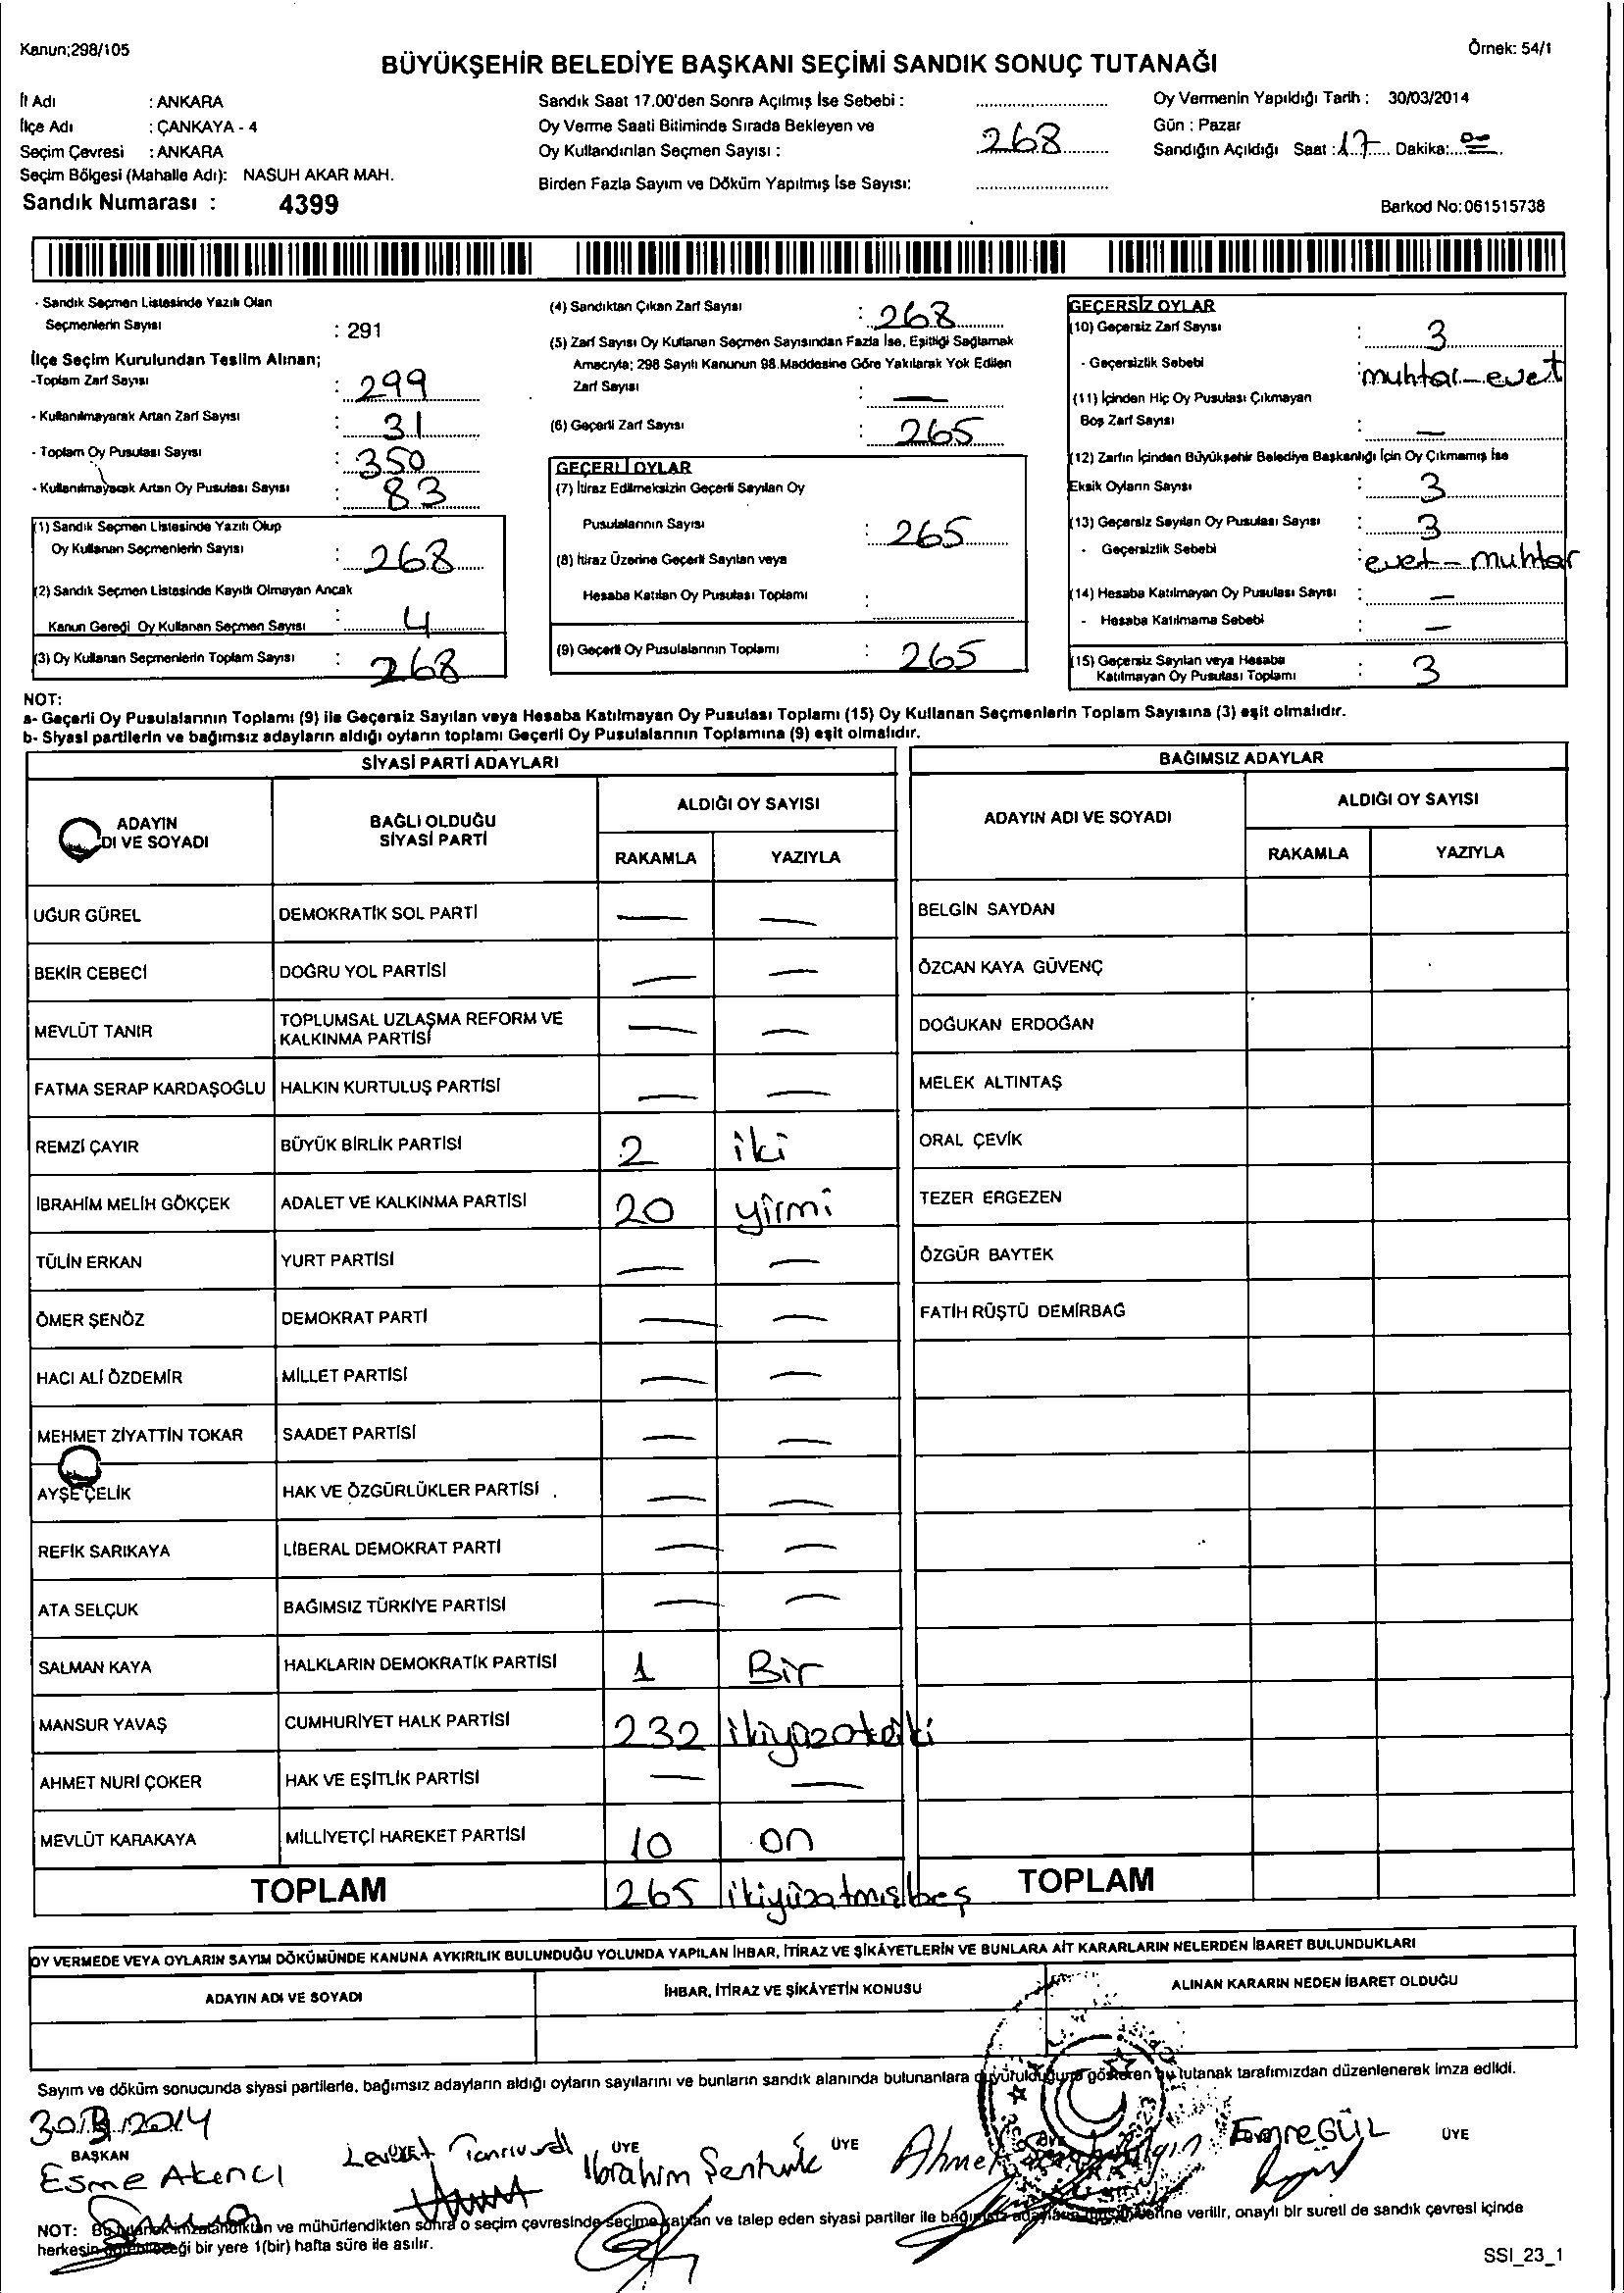 Kanun;298/105
Örnek: 54/1
BÜYÜKŞEHİR BELEDİYE BAŞKANI SEÇİMİ SANDIK SONUÇ TUTANAĞI
İl Adı : ANKARA
İlçe Adı : ÇANKAYA - 4
Seçim Çevresi : ANKARA
Seçim Bölgesi (Mahalle Adı): NASUH AKAR MAH.
Sandık Numarası : 4399
Sandık Saat 17.00'den Sonra Açılmış İse Sebebi :
Oy Verme Saati Bitiminde Sırada Bekleyen ve
Oy Kullandırılan Seçmen Sayısı : 268
Birden Fazla Sayım ve Döküm Yapılmış İse Sayısı:
Oy Vermenin Yapıldığı Tarih : 30/03/2014
Gün : Pazar
Sandığın Açıldığı Saat : 17 Dakika:
Barkod No:061515738
- Sandık Seçmen Listesinde Yazılı Olan
Seçmenlerin Sayısı : 291
İlçe Seçim Kurulundan Teslim Alınan;
-Toplam Zarf Sayısı : 299
- Kullanılmayarak Artan Zarf Sayısı : 31
- Toplam Oy Pusulası Sayısı : 350
- Kullanılmayacak Artan Oy Pusulası Sayısı : 83
(1) Sandık Seçmen Listesinde Yazılı Olup
Oy Kullanan Seçmenlerin Sayısı : 268
(2) Sandık Seçmen Listesinde Kayıtlı Olmayan Ancak
Kanun Gereği Oy Kullanan Seçmen Sayısı : 4
(3) Oy Kullanan Seçmenlerin Toplam Sayısı : 268
(4) Sandıktan Çıkan Zarf Sayısı : 268
(5) Zarf Sayısı Oy Kullanan Seçmen Sayısından Fazla İse, Eşitliği Sağlamak
Amacıyla; 298 Sayılı Kanunun 98.Maddesine Göre Yakılarak Yok Edilen
Zarf Sayısı : —
(6) Geçerli Zarf Sayısı : 265
GEÇERLİ OYLAR
(7) İtiraz Edilmeksizin Geçerli Sayılan Oy
Pusulalarının Sayısı : 265
(8) İtiraz Üzerine Geçerli Sayılan veya
Hesaba Katılan Oy Pusulası Toplamı :
(9) Geçerli Oy Pusulalarının Toplamı : 265
GEÇERSİZ OYLAR
(10) Geçersiz Zarf Sayısı : 3
- Geçersizlik Sebebi : muhtar-evet
(11) İçinden Hiç Oy Pusulası Çıkmayan
Boş Zarf Sayısı : —
(12) Zarfın İçinden Büyükşehir Belediye Başkanlığı İçin Oy Çıkmamış İse
Eksik Oyların Sayısı : 3
(13) Geçersiz Sayılan Oy Pusulası Sayısı : 3
- Geçersizlik Sebebi : evet-muhtar
(14) Hesaba Katılmayan Oy Pusulası Sayısı : —
- Hesaba Katılmama Sebebi : —
(15) Geçersiz Sayılan veya Hesaba
Katılmayan Oy Pusulası Toplamı : 3
NOT:
a- Geçerli Oy Pusulalarının Toplamı (9) ile Geçersiz Sayılan veya Hesaba Katılmayan Oy Pusulası Toplamı (15) Oy Kullanan Seçmenlerin Toplam Sayısına (3) eşit olmalıdır.
b- Siyasi partilerin ve bağımsız adayların aldığı oyların toplamı Geçerli Oy Pusulalarının Toplamına (9) eşit olmalıdır.
SİYASİ PARTİ ADAYLARI
ADAYIN
DI VE SOYADI
BAĞLI OLDUĞU
SİYASİ PARTİ
ALDIĞI OY SAYISI
RAKAMLA YAZIYLA
UĞUR GÜREL DEMOKRATİK SOL PARTİ — —
BEKİR CEBECİ DOĞRU YOL PARTİSİ — —
MEVLÜT TANIR TOPLUMSAL UZLAŞMA REFORM VE
KALKINMA PARTİSİ — —
FATMA SERAP KARDAŞOĞLU HALKIN KURTULUŞ PARTİSİ — —
REMZİ ÇAYIR BÜYÜK BİRLİK PARTİSİ 2 iki
İBRAHİM MELİH GÖKÇEK ADALET VE KALKINMA PARTİSİ 20 yirmi
TÜLİN ERKAN YURT PARTİSİ — —
ÖMER ŞENÖZ DEMOKRAT PARTİ — —
HACI ALİ ÖZDEMİR MİLLET PARTİSİ — —
MEHMET ZİYATTİN TOKAR SAADET PARTİSİ — —
AYŞE ÇELİK HAK VE ÖZGÜRLÜKLER PARTİSİ — —
REFİK SARIKAYA LİBERAL DEMOKRAT PARTİ — —
ATA SELÇUK BAĞIMSIZ TÜRKİYE PARTİSİ — —
SALMAN KAYA HALKLARIN DEMOKRATİK PARTİSİ 1 Bir
MANSUR YAVAŞ CUMHURİYET HALK PARTİSİ 232
AHMET NURİ ÇOKER HAK VE EŞİTLİK PARTİSİ — —
MEVLÜT KARAKAYA MİLLİYETÇİ HAREKET PARTİSİ 10 on
TOPLAM 265 ikiyüzatmışbeş
BAĞIMSIZ ADAYLAR
ADAYIN ADI VE SOYADI
ALDIĞI OY SAYISI
RAKAMLA YAZIYLA
BELGİN SAYDAN
ÖZCAN KAYA GÜVENÇ
DOĞUKAN ERDOĞAN
MELEK ALTINTAŞ
ORAL ÇEVİK
TEZER ERGEZEN
ÖZGÜR BAYTEK
FATİH RÜŞTÜ DEMİRBAĞ
TOPLAM
OY VERMEDE VEYA OYLARIN SAYIM DÖKÜMÜNDE KANUNA AYKIRILIK BULUNDUĞU YOLUNDA YAPILAN İHBAR, İTİRAZ VE ŞİKÂYETLERİN VE BUNLARA AİT KARARLARIN NELERDEN İBARET BULUNDUKLARI
ADAYIN ADI VE SOYADI İHBAR, İTİRAZ VE ŞİKÂYETİN KONUSU ALINAN KARARIN NEDEN İBARET OLDUĞU
Sayım ve döküm sonucunda siyasi partilerle, bağımsız adayların aldığı oyların sayılarını ve bunların sandık alanında bulunanlara duyurulduğunu gösteren bu tutanak tarafımızdan düzenlenerek imza edildi.
BAŞKAN ÜYE ÜYE ÜYE
Esme Akıncı Levent Tanrıverdi İbrahim Şentürk Ahmet Emre GÜL
NOT: Bu tutanak imzalandıktan ve mühürlendikten sonra o seçim çevresinde seçime katılan ve talep eden siyasi partiler ile bağımsız verilir, onaylı bir sureti de sandık çevresi içinde
herkesin görebileceği bir yere 1(bir) hafta süre ile asılır.
SSI_23_1